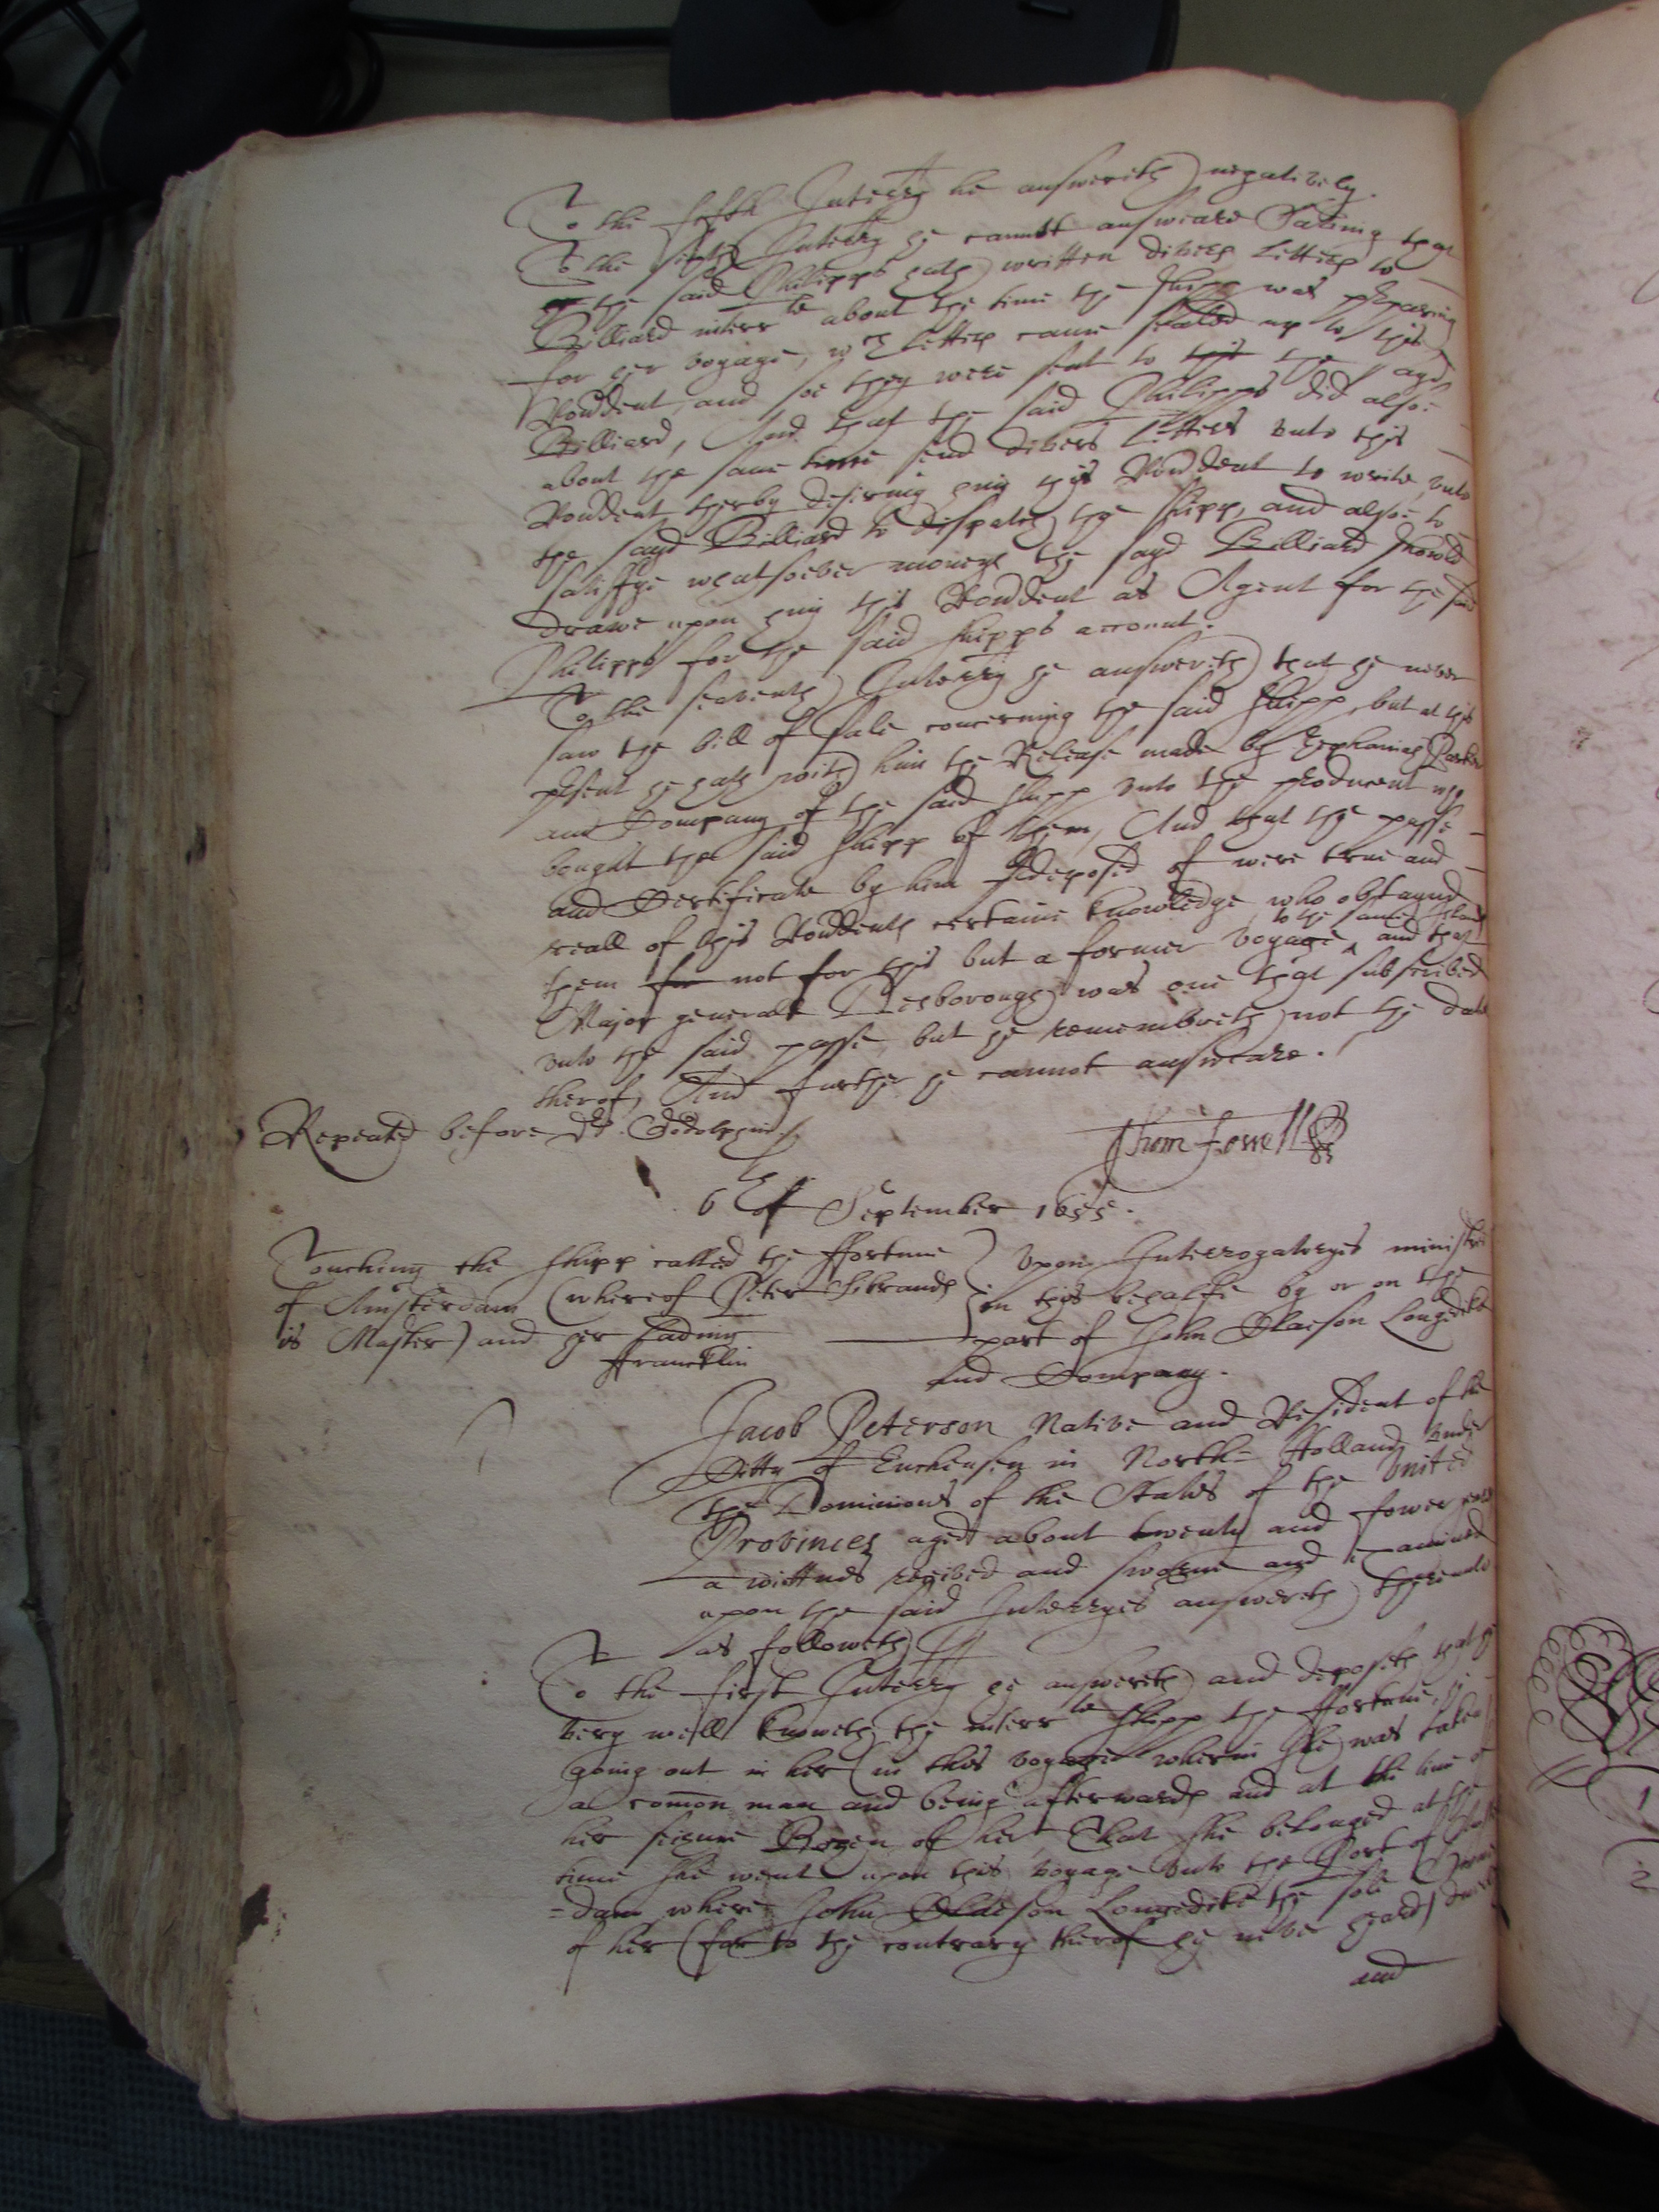 To the fifth Interry he answereth negatively.
To the sixth Interry he cannot answeare Saving that
the said Philipps hath written divers letters to
Billiard interrte about the time the shipp was preparing
for her voyage, wch letters came sealed up to this
Rondent, and soe they were sent to this the sayd
Billiard, And that the said Philipps did alsoe
about the same time send divers letters unto this
Rondent therby desiring him this Rondent to write unto
the sayd Billiard to dispatch the shipp, and alsoe to
satisfye whatsoever moneys the sayd Billiard should
drawe upon him this Rondent as Agent for the said
Philipps for the said shipps account.
To the seaventh Interry he answereth that he never
saw the bill of sale concerning the said shipp, but at this
present he hath with him the Release made by Zephaniah
and Company of the said shipp unto the producent who
bought the said shipp of them, And that the passe
and Certificate by him predeposed of were true and
reall of this Rondents certaine knowledge who obtayned
them for not for this but a former voyage to the same and that
Major generall Desborough was one that subscribed
unto the said passe, but he remembreth not the date
therof, And further he cannot answeare.
Repeated before Dr. Godolphin
Thom ffowell
6th of September 1655.
Touching the shipp called the ffortune
of Amsterdam (whereof Peter Sibrands
is Master) and her lading
ffrancklin
Upon Interrogatoryes ministred
in this behalfe by or on the
part of John Claeson Longedike
and Company.
Jacob Peterson Native and Resident of the
Citty of Enchusen in North-Holland under
the Dominions of the States of the United
Provinces aged about twenty and fower yeares
a wittnes received and sworne and examined
upon the said Interryes answereth thereunto
as followeth
To the first Interry he answereth and deposeth that he
very well knoweth the interrte shipp the ffortune,
going out in her (in this voyage wherin she was taken)
a common man and being afterwards and at the time of
her seizure Bozen of her That she belonged at the
time she went upon this voyage unto the Port of Amster
=dam where John Claeson Longedike the sole Owner
of her (for to the contrary therof he never heard)
and